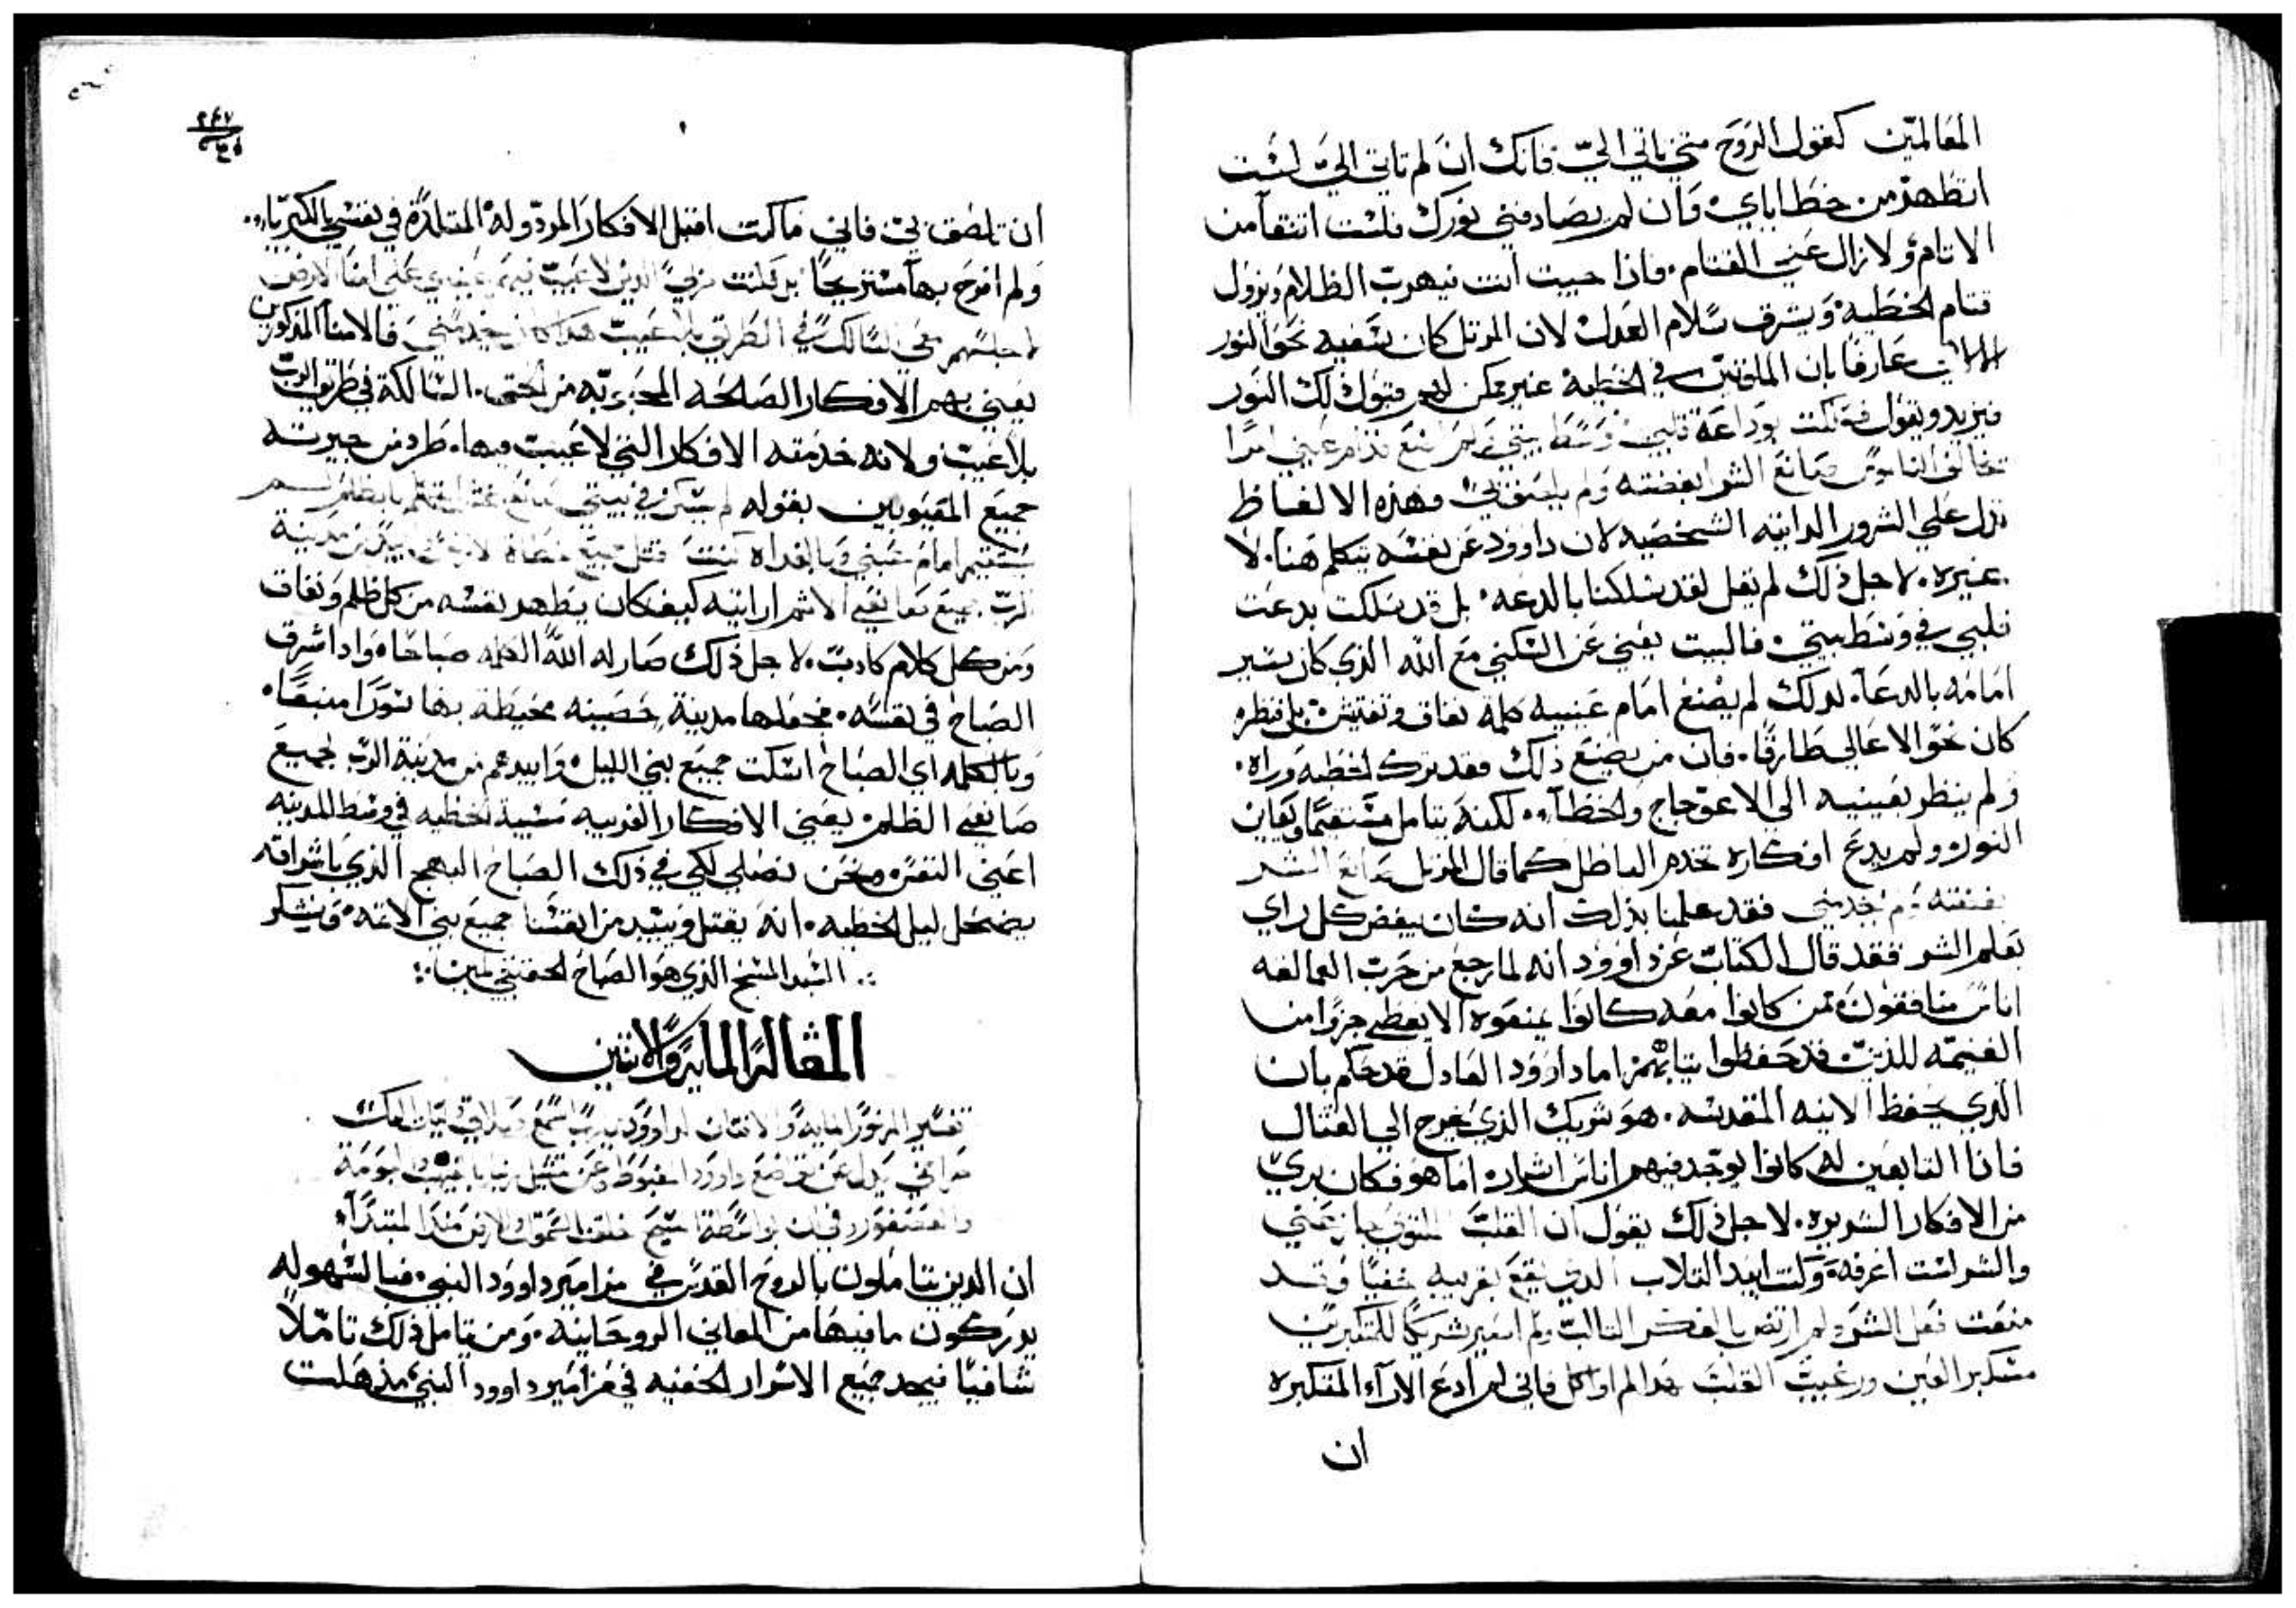 المقالمين كقول الروح متى ياتي اليّ فانك ان لم تاتي اليّ لست
اتطهر من خطاياي وان لم يصادفني نورك فلست انتقا من
الاتام ولا زال عني القتام. فاذا جيت انت فيهرب الظلام ويزول
قتام الخطيه ويشرف سلام العدل لان المرتل كان بنفسه نحو النور
عارفا بان الملوتين في الخطية غير ممكن لهم قبول ذلك النور
فيزيد ويقول قد سلكت بوداعة قلبي وسط بيتي ولم اضع قدام عيني امرا
تخالف الناموس صانع الشر ابغضته ولم يلصق بي وهذه الالفاظ
تدل على الشرور الداتيه الشخصيه لان داوود عن نفسه يتكلم هنا. لا
غيره. لاجل ذلك لم يقل لقد سلكنا بالدعه بل قد سلكت بدعت
قلبي في وسط بيتي. فالبيت يعني عن السكني مع الله الذي كان يسير
امامه بالدعا. لدلك لم يصنع امام عينيه كلمة نفاق وتفتيش بل نظره
كان نحو الاعالي طارقا. فان من يصنع ذلك فقد ترك الخطيه وراه.
ولم ينظر بعينيه الي الاعوجاج والخطا.. لكنه يتامل مستقيما ويعاين
النور. ولم يدع افكاره تخدم الباطل كما قال المرتل صانع الشر
بغضته لم يخدمني فقد علمنا بذلك انه كان يبغض كل راي
بعلم الشر فقد قال الكتاب عن داوود انه لما رجع من حرب العمالقه
اناس منافقون ممن كانوا معه كانوا يمنعوه الا يعطي جزوا من
الغنيمه للذين قد حفظوا ثيابهم اما داوود العادل قد حكم بان
الذي يحفظ الانيه المقدسه. هو شريك الذي يخرج الي القتال
فاذا التابعين له كانوا يوجد فيهم اناس اشرار. اما هو فكان بري
من الافكار الشريره. لاجل ذلك يقول ان القلب الملتوي جاز عني
والشر لست اعرفه وكنت ابيد التلاب الدي يقع بقريبه خفيا وقد
منعت فعل الشر ولم ارتض بالفكر التالب ولم اصير شريكا للمتكبرين
متكبر العين ورغيب القلب هدا لم اواكل فاني لم ادع الاراء المتكبره
ان
٢٤٧
ان تلصق بي فاني ما كنت اقبل الافكار المردوله المتلذذة في نفسي بالكبريا..
ولم افرح بها مستريحا بل كانت عيني الذين لا عيب فيهم عيناي على امنا الارض
لاجلسهم معي السالك في الطريق بلا عيب هدا كان يخدمني فالامنا المذكورين
يعني بهم الافكار الصالحه المحبوبه من الحق. السالكة في طريق الرب
بلا عيب ولانه خدمته الافكار التي لا عيب فيها. طرد من جيرته
جميع المقيوبين بقوله لم يسكن في بيتي صانع عظمة المتكلم بالظلم لم
يستقيم امام عيني وبالغداه كنت اقتل جميع خطاة الارض لابيد من مدينة
الرب جميع صانعي الاثم ارايته كيف كان يطهر نفسه من كل ظلم ونفاق
ومن كل كلام كادب. لاجل ذلك صار له الله الكلمه صباحا. وادا اشرق
الصباح في نفسه. فجعلها مدينة حصينه محيطة بها سورا منيعا.
وبالكلمه اي الصباح اسكت جميع بني الليل وابيدهم من مدينة الرب لجميع
صانعي الظلم. يعني الافكار الغريبه مسببة الخطيه في وسط المدينه
اعني النفس. ونحن نصلي لكي في ذلك الصباح البهج الذي باشراقه
يضمحل ليل الخطيه. انه يقتل ويبيد من انفسنا جميع بني الاثمه. ونشكر
السيد المسيح الذي هو الصباح الحقيقي امين
المقالة الماية والاثنين
تفسير المزمور الماية والاثنان لداوود يارب اسمع صلاتي ليات اليك
صراخي يدل عن تواضع داوود المغبوط وعن تمثيل ربنا بالغيهب البومة
والعصفور وفي ان بواسطة المسيح خلقت السموات والارض منذ المبتدا
ان الدين يتاملون بالروح القدس في مزامير داوود النبي. فبالسهوله
يدركون ما فيها من المعاني الروحانيه. ومن يتامل ذلك تاملا
شافيا فيجد جميع الاسرار الخفيه في مزامير داوود النبي مذهلت